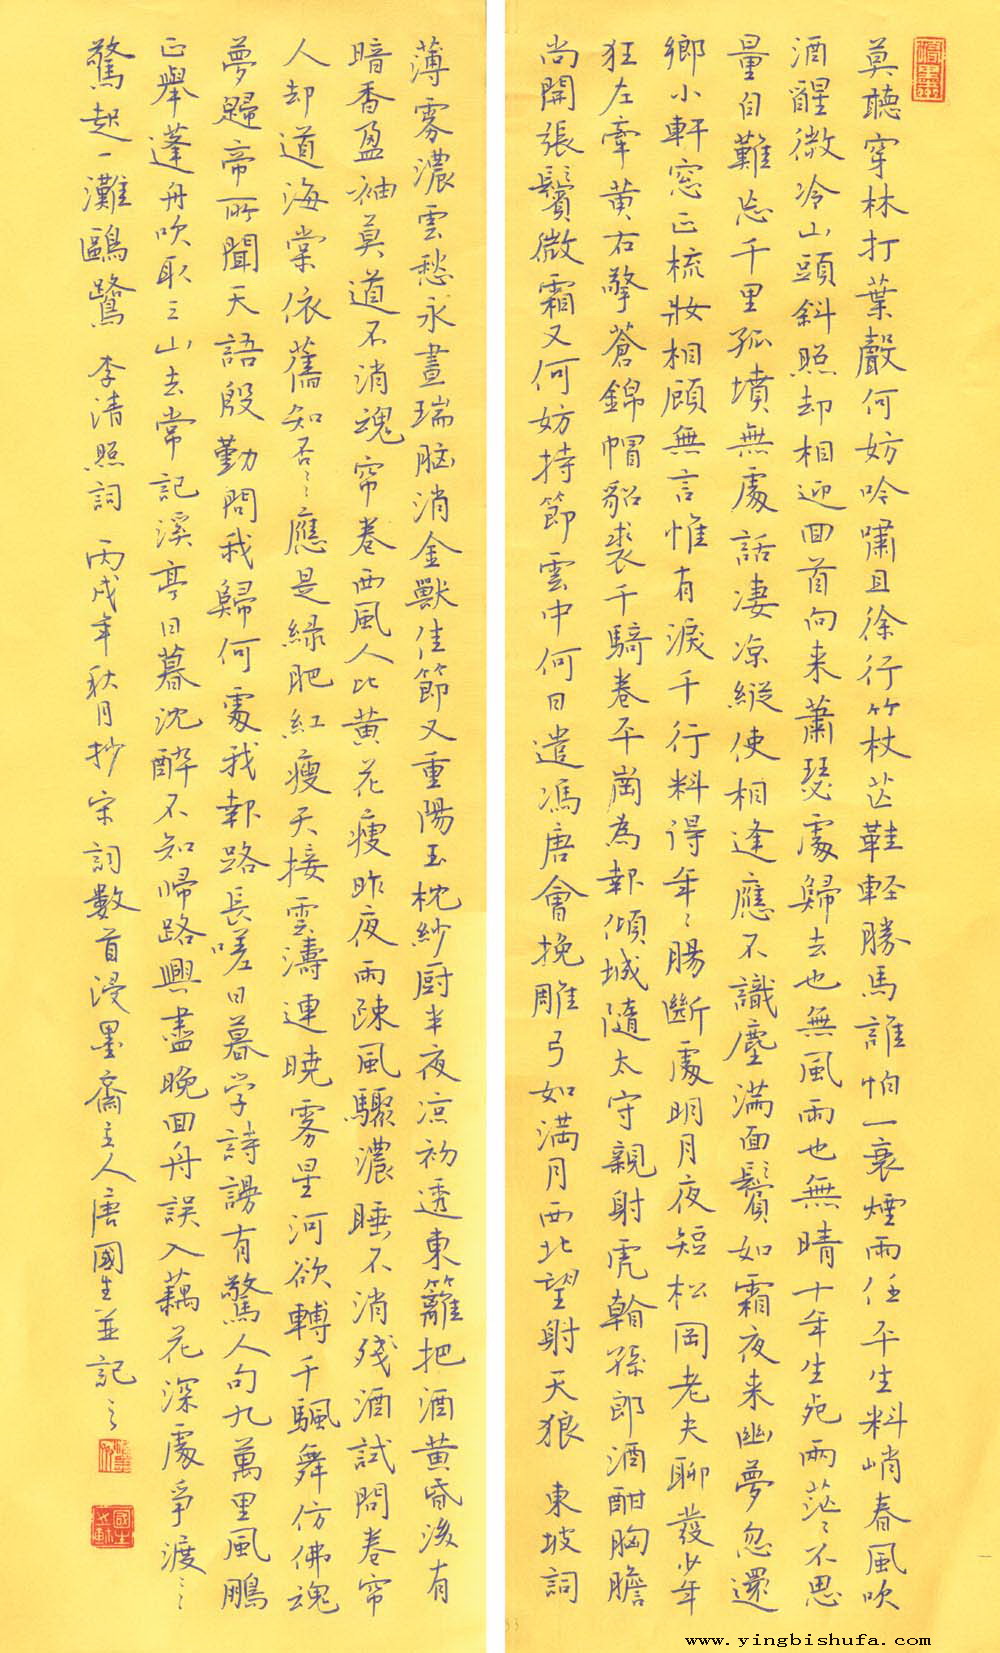 莫聽穿林打葉聲何妨吟嘯且徐行竹杖芒鞋軽勝馬誰怕一蓑煙雨任平生料峭春風吹
酒醒微冷山頭斜照却相迎回首向来蕭瑟處歸去也無風雨也無晴十年生死兩茫〻不思
量自難忘千里孤墳無處話凄凉縱使相逢應不識塵满面鬢如霜夜来幽夢忽還
鄉小軒窓正梳妝相顧無言惟有淚千行料得年〻腸斷處明月夜短松岡老夫聊發少年
狂左牽黄右擎蒼錦帽貂裘千騎卷平崗為報傾城隨太守親射虎翰孫郎酒酣胸膽
尚開張鬢微霜又何妨持節雲中何日遣馮唐會挽雕弓如满月西北望射天狼 東坡詞
薄雾濃雲愁永晝瑞脑消金獸佳節又重陽玉枕紗厨半夜凉初透東籬把酒黄昏後有
暗香盈袖莫道不消魂帘卷西風人比黄花瘦昨夜雨疎風驟濃睡不消殘酒試問卷帘
人却道海棠依舊知否〻應是緑肥紅瘦天接雲濤連曉雾星河欲轉千颿舞仿佛魂
夢歸帝所聞天語殷勤問我歸何處我報路長嗟日暮学詩謾有驚人句九萬里風鵬
正舉蓬舟吹取三山去常記溪亭日暮沈醉不知歸路興盡晚回舟誤入藕花深處爭渡〻
驚起一灘鷗鷺 李清照詞 丙戌年秋月抄宋詞數首浸墨齋主人唐國生並記之
www.yingbishufa.com